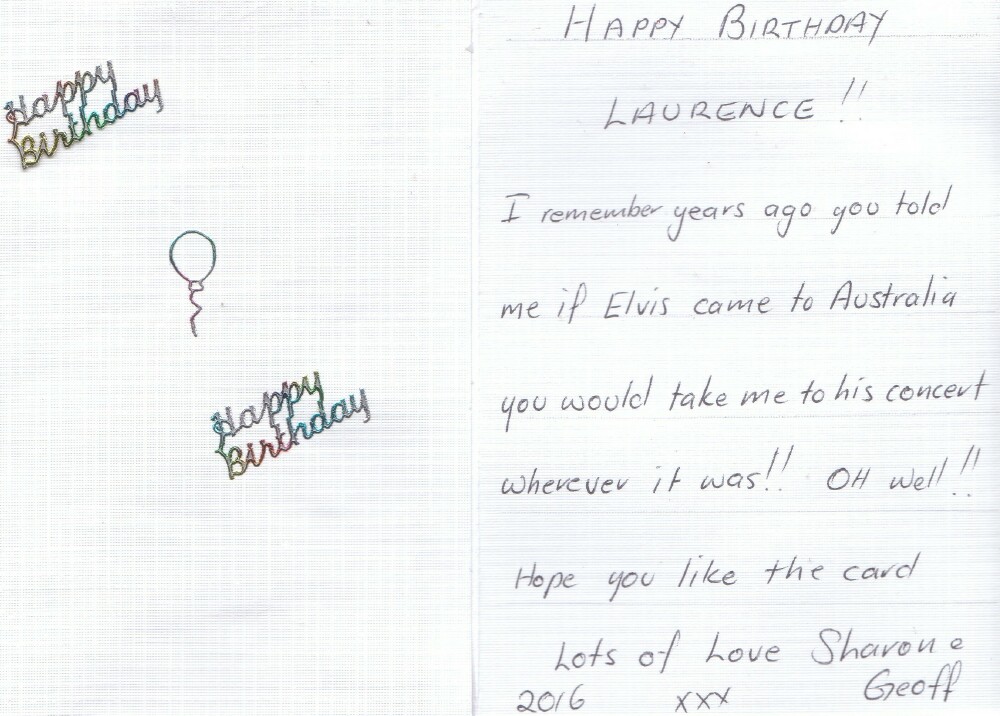 Happy
Birthday
Happy
Birthday
HAPPY BIRTHDAY
LAURENCE !!
I remember years ago you told
me if Elvis came to Australia
you would take me to his concert
wherever it was!! OH well!!
Hope you like the card
Lots of Love Sharon e
Geoff
2016 xxx